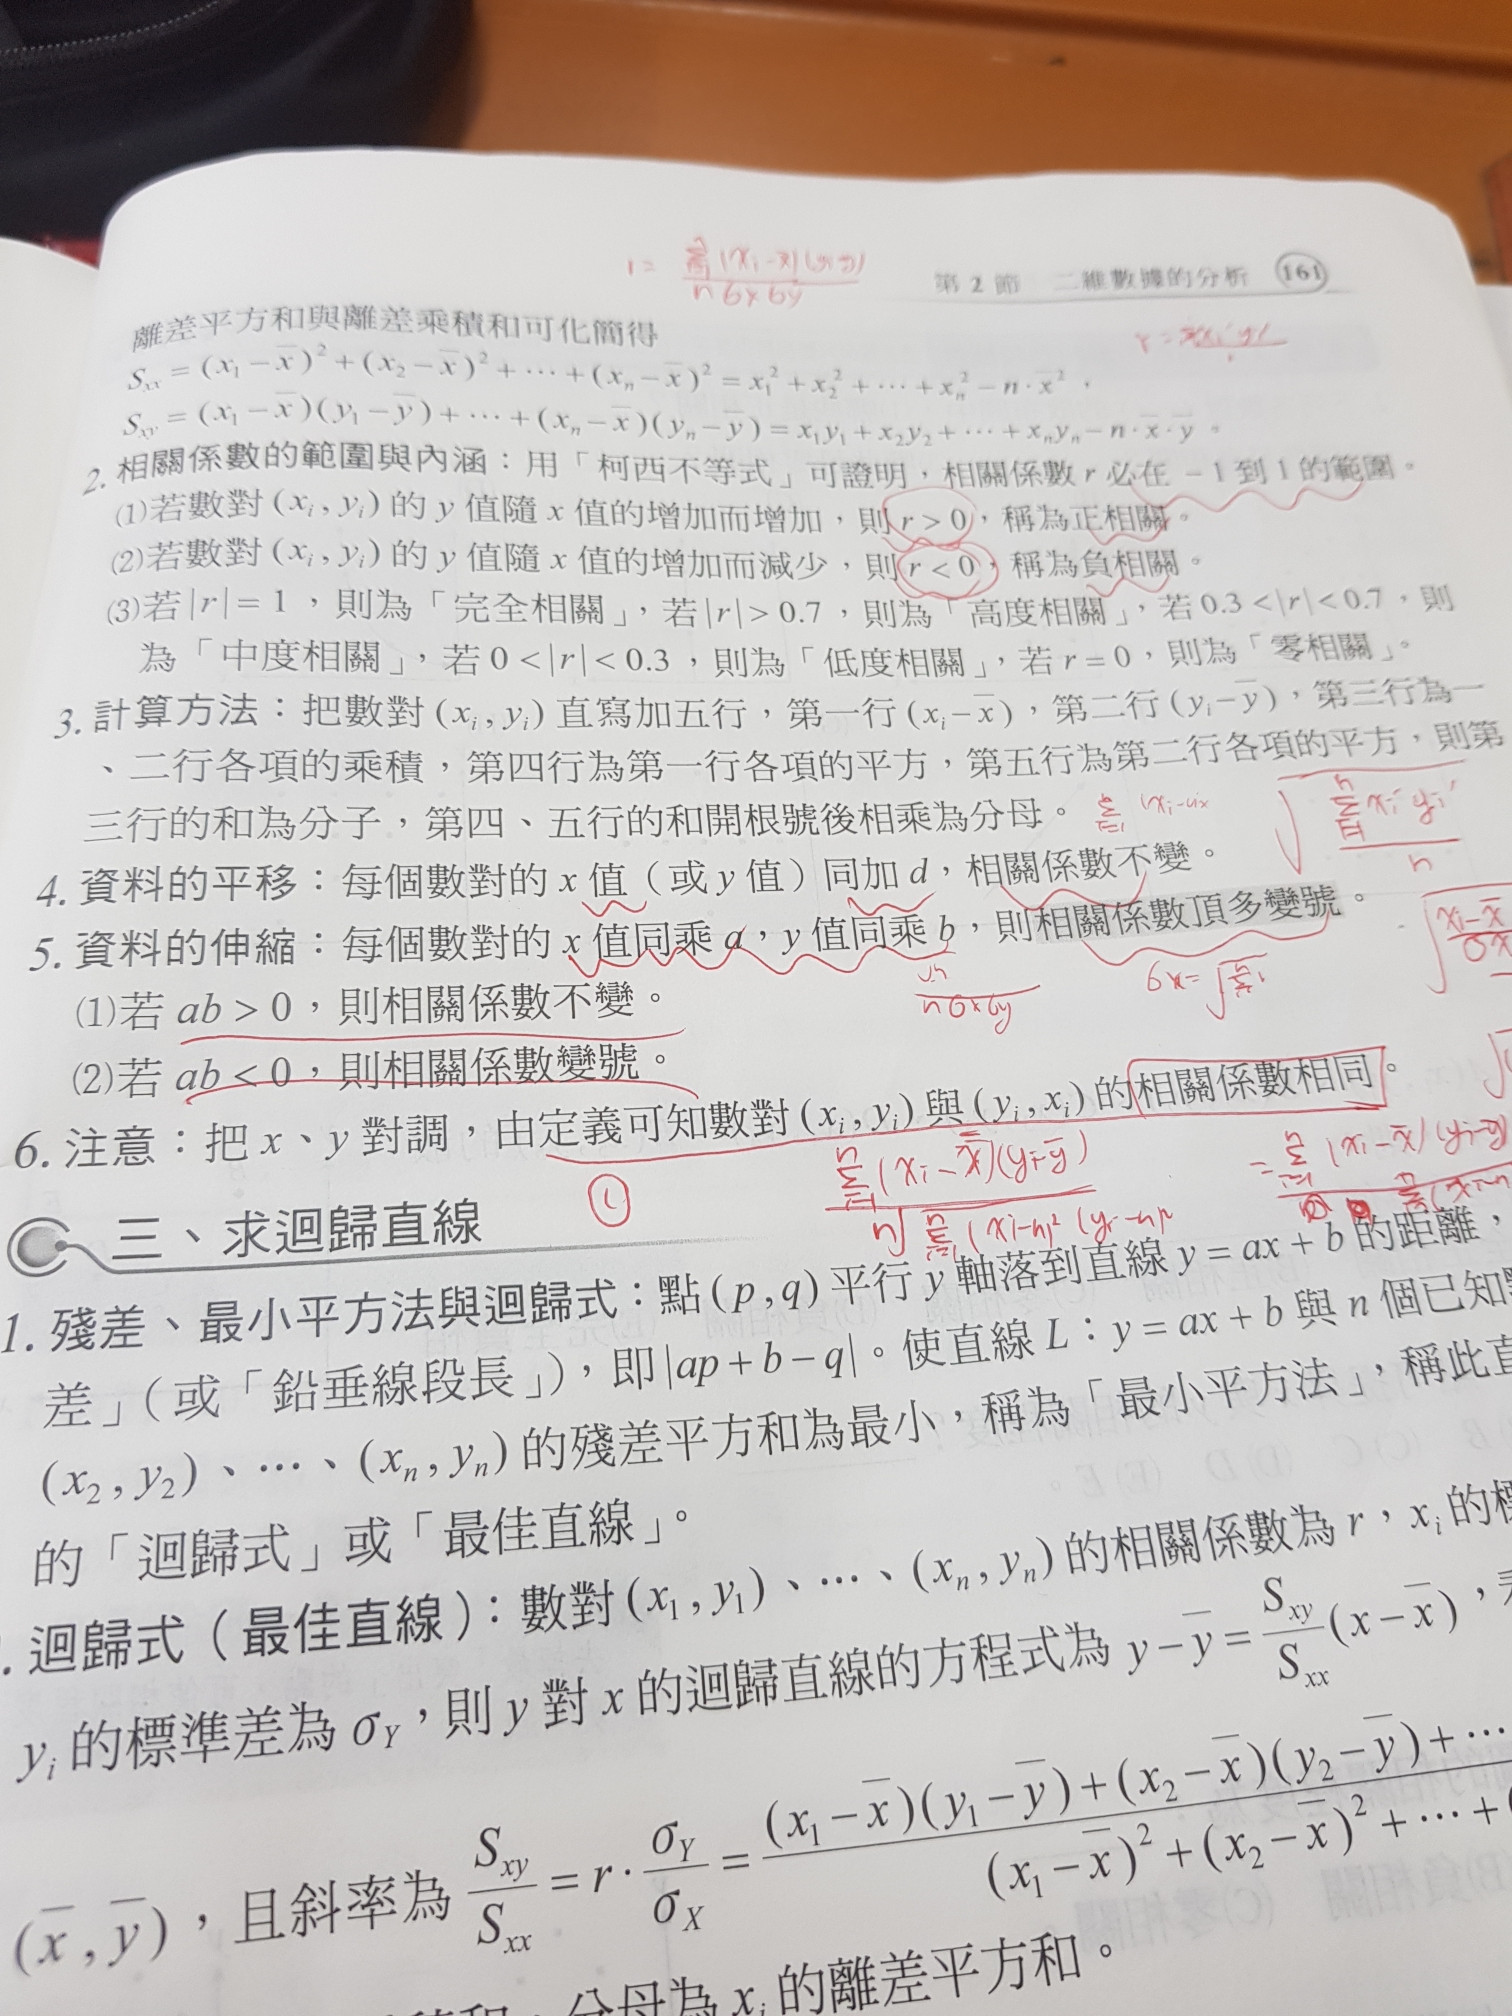 第 2 節 二維數據的分析 161
離差平方和與離差乘積和可化簡得
Sxx = (x₁ − x̄)² + (x₂ − x̄)² + ⋯ + (xₙ − x̄)² = x₁² + x₂² + ⋯ + xₙ² − n · x̄²，
Sxy = (x₁ − x̄)(y₁ − ȳ) + ⋯ + (xₙ − x̄)(yₙ − ȳ) = x₁y₁ + x₂y₂ + ⋯ + xₙyₙ − n · x̄ · ȳ。
2. 相關係數的範圍與內涵：用「柯西不等式」可證明，相關係數 r 必在 −1 到 1 的範圍。
⑴若數對 (xᵢ , yᵢ) 的 y 值隨 x 值的增加而增加，則 r > 0，稱為正相關。
⑵若數對 (xᵢ , yᵢ) 的 y 值隨 x 值的增加而減少，則 r < 0，稱為負相關。
⑶若 |r| = 1，則為「完全相關」，若 |r| > 0.7，則為「高度相關」，若 0.3 < |r| < 0.7，則
為「中度相關」，若 0 < |r| < 0.3，則為「低度相關」，若 r = 0，則為「零相關」。
3. 計算方法：把數對 (xᵢ , yᵢ) 直寫加五行，第一行 (xᵢ − x̄)，第二行 (yᵢ − ȳ)，第三行為一
、二行各項的乘積，第四行為第一行各項的平方，第五行為第二行各項的平方，則第
三行的和為分子，第四、五行的和開根號後相乘為分母。
4. 資料的平移：每個數對的 x 值（或 y 值）同加 d，相關係數不變。
5. 資料的伸縮：每個數對的 x 值同乘 a，y 值同乘 b，則相關係數頂多變號。
⑴若 ab > 0，則相關係數不變。
⑵若 ab < 0，則相關係數變號。
6. 注意：把 x、y 對調，由定義可知數對 (xᵢ , yᵢ) 與 (yᵢ , xᵢ) 的相關係數相同。
三、求迴歸直線
1. 殘差、最小平方法與迴歸式：點 (p , q) 平行 y 軸落到直線 y = ax + b 的距離，
差」（或「鉛垂線段長」），即 |ap + b − q|。使直線 L：y = ax + b 與 n 個已知
(x₂ , y₂)、⋯、(xₙ , yₙ) 的殘差平方和為最小，稱為「最小平方法」，稱此直
的「迴歸式」或「最佳直線」。
. 迴歸式（最佳直線）：數對 (x₁ , y₁)、⋯、(xₙ , yₙ) 的相關係數為 r，xᵢ 的標
yᵢ 的標準差為 σY，則 y 對 x 的迴歸直線的方程式為 y − ȳ = Sxy/Sxx (x − x̄)，
(x̄ , ȳ)，且斜率為 Sxy/Sxx = r · σY/σX = (x₁ − x̄)(y₁ − ȳ) + (x₂ − x̄)(y₂ − ȳ) + ⋯ / (x₁ − x̄)² + (x₂ − x̄)² + ⋯ +
分母為 xᵢ 的離差平方和。